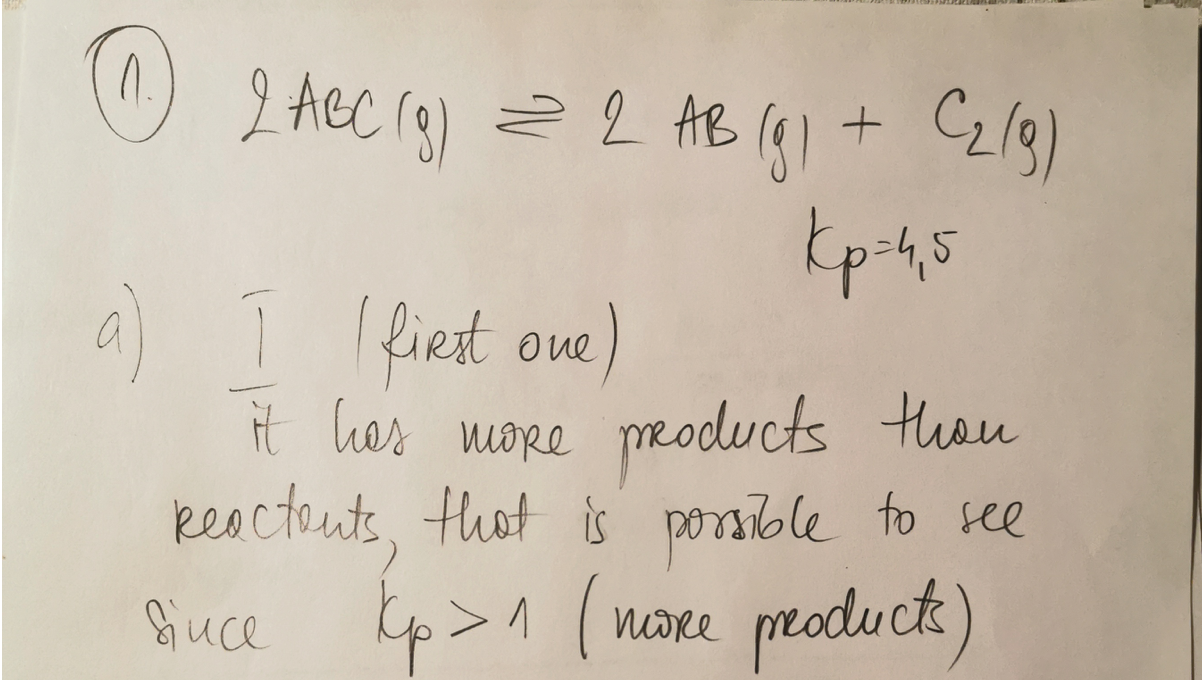 1.
2ABC(g) ⇌ 2 AB(g) + C₂(g)
Kp=4,5
a) I (first one)
it has more products than
reactants, that is possible to see
since Kp > 1 (more products)